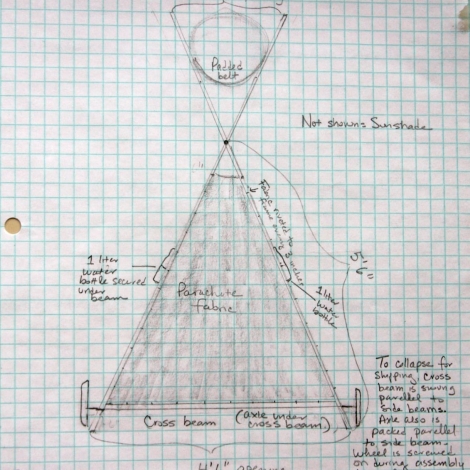 Padded
belt
Not shown: Sunshade
1"
Fabric riveted to
frame every 3 inches
5'
6"
1 liter
water
bottle secured
under
beam
1 liter
water
bottle
Parachute
Fabric
To collapse for
shipping cross
beam is swung
parallel to
side beams.
Axle also is
packed parallel
to side beam.
Wheel is screwed
on during assembly
Cross beam (axle under
cross beam)
4'1" opening